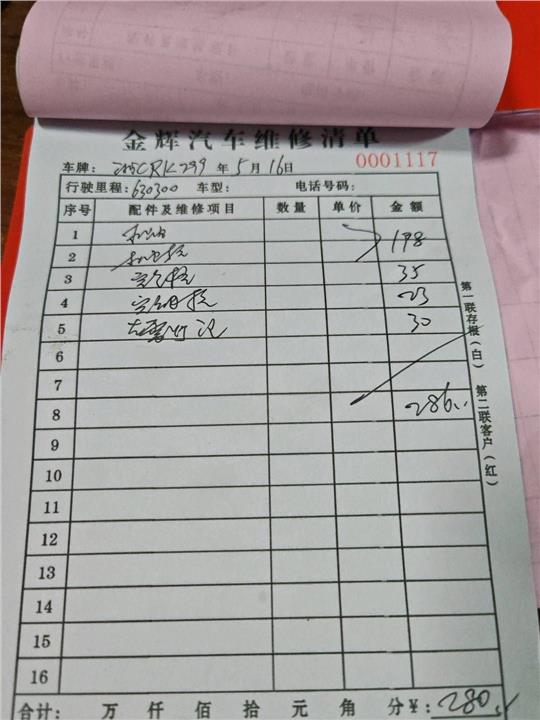 金辉汽车维修清单
车牌: CRK299 年 5 月 16 日 0001117
行驶里程: 630300 车型: 电话号码:
序号 配件及维修项目 数量 单价 金额
1 机油
2 机油格 198
3 空气格 35
4 空调格 23
5 30
6
7
8 286
9
10
11
12
13
14
15
16
合计: 万 仟 佰 拾 元 角 分 ¥: 280
第一联存根(白) 第二联客户(红)